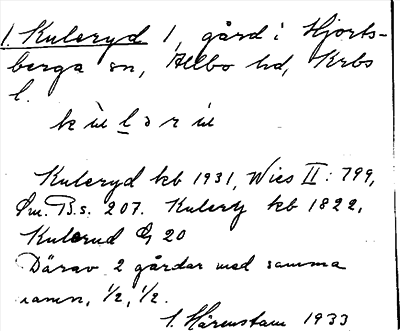 1. Kuleryd 1, gård i Hjorts-
berga sn, Allbo hd, Krbs
l.
k ù l ə r ú
Kuleryd kb 1931, Wies II: 799,
Sm. B.s. 207. Kulery kb 1822,
Kulerud G 20
Därav 2 gårdar med samma
namn, 1/2, 1/2.
I. Härenstam 1933